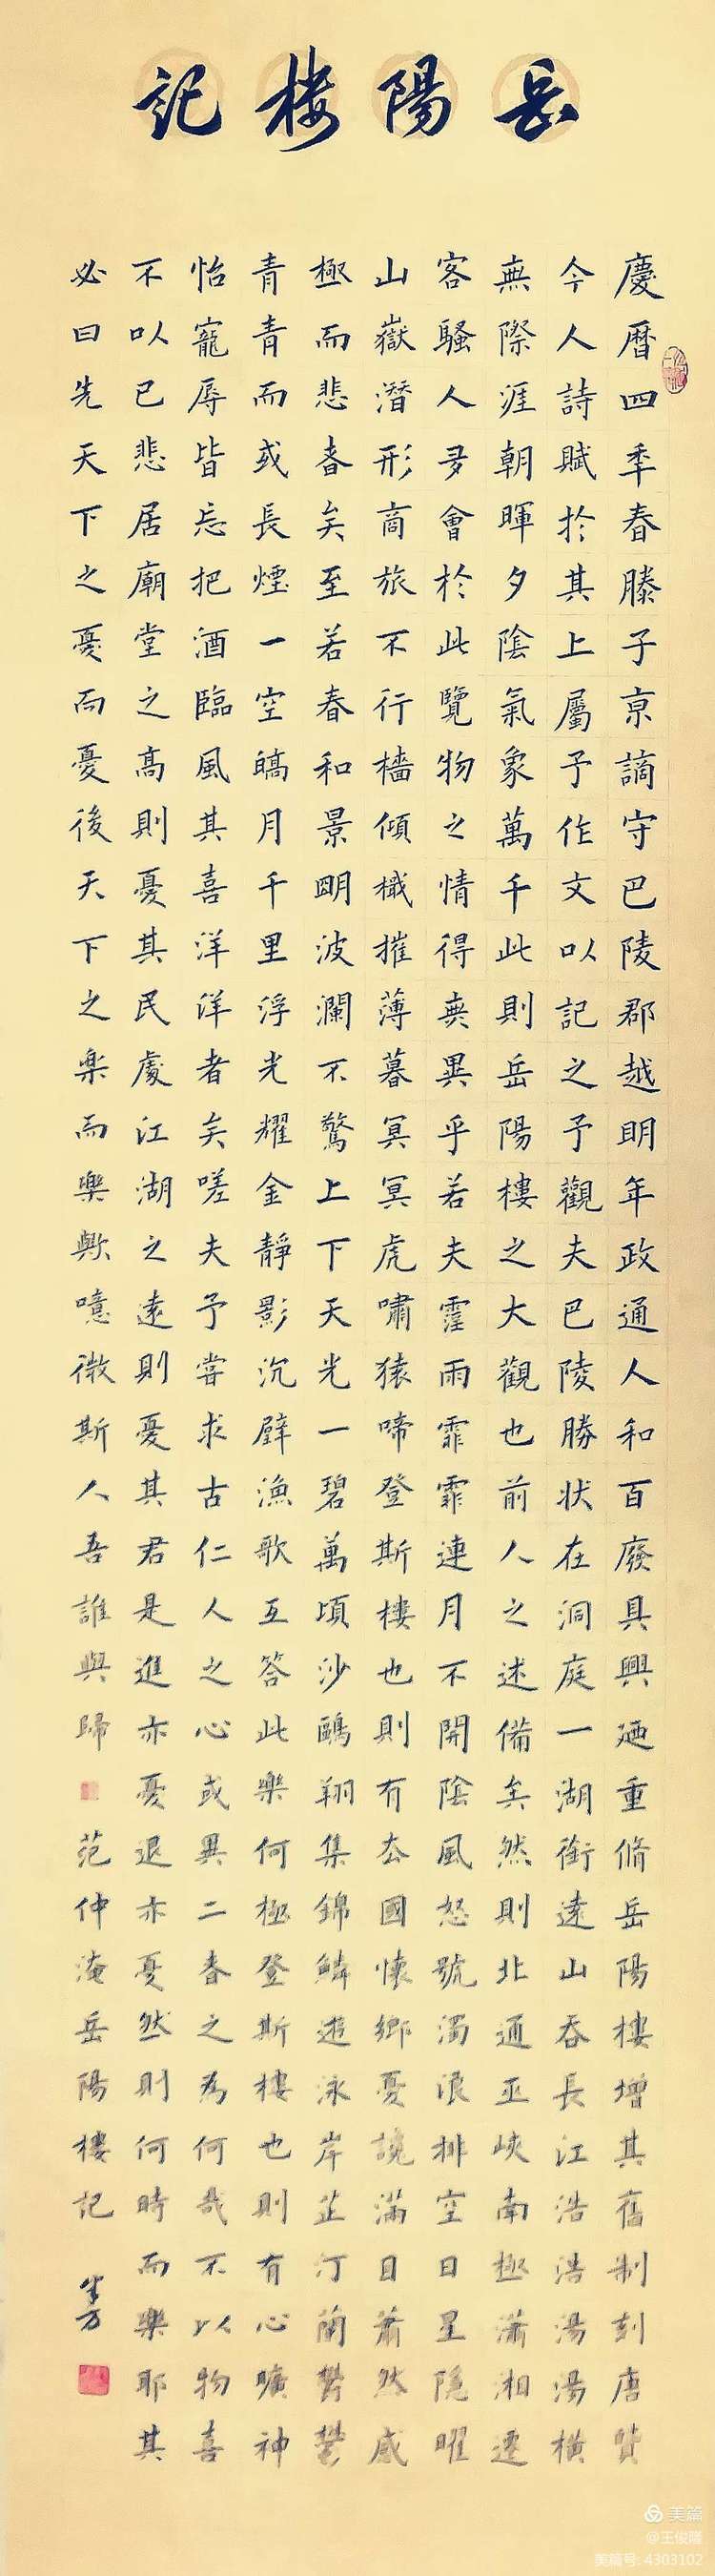 岳陽楼記
慶曆四年春滕子京謫守巴陵郡越明年政通人和百廢具興廼重脩岳陽樓增其舊制刻唐賢
今人詩賦於其上屬予作文以記之予觀夫巴陵勝状在洞庭一湖銜遠山吞長江浩浩湯湯橫
無際涯朝暉夕陰氣象萬千此則岳陽樓之大觀也前人之述備矣然則北通巫峽南極瀟湘遷
客騷人多會於此覽物之情得無異乎若夫霪雨霏霏連月不開陰風怒號濁浪排空日星隱曜
山嶽潛形商旅不行檣傾檝摧薄暮冥冥虎嘯猿啼登斯樓也則有去國懷鄉憂讒滿目蕭然感
極而悲者矣至若春和景明波瀾不驚上下天光一碧萬頃沙鷗翔集錦鱗遊泳岸芷汀蘭鬱鬱
青青而或長煙一空皜月千里浮光耀金靜影沉壁漁歌互答此樂何極登斯樓也則有心曠神
怡寵辱皆忘把酒臨風其喜洋洋者矣嗟夫予嘗求古仁人之心或異二者之為何哉不以物喜
不以已悲居廟堂之高則憂其民處江湖之遠則憂其君是進亦憂退亦憂然則何時而樂耶其
必曰先天下之憂而憂後天下之樂而樂歟噫微斯人吾誰與歸
范仲淹岳陽樓記
美篇
@王俊隱
美篇号: 4303102